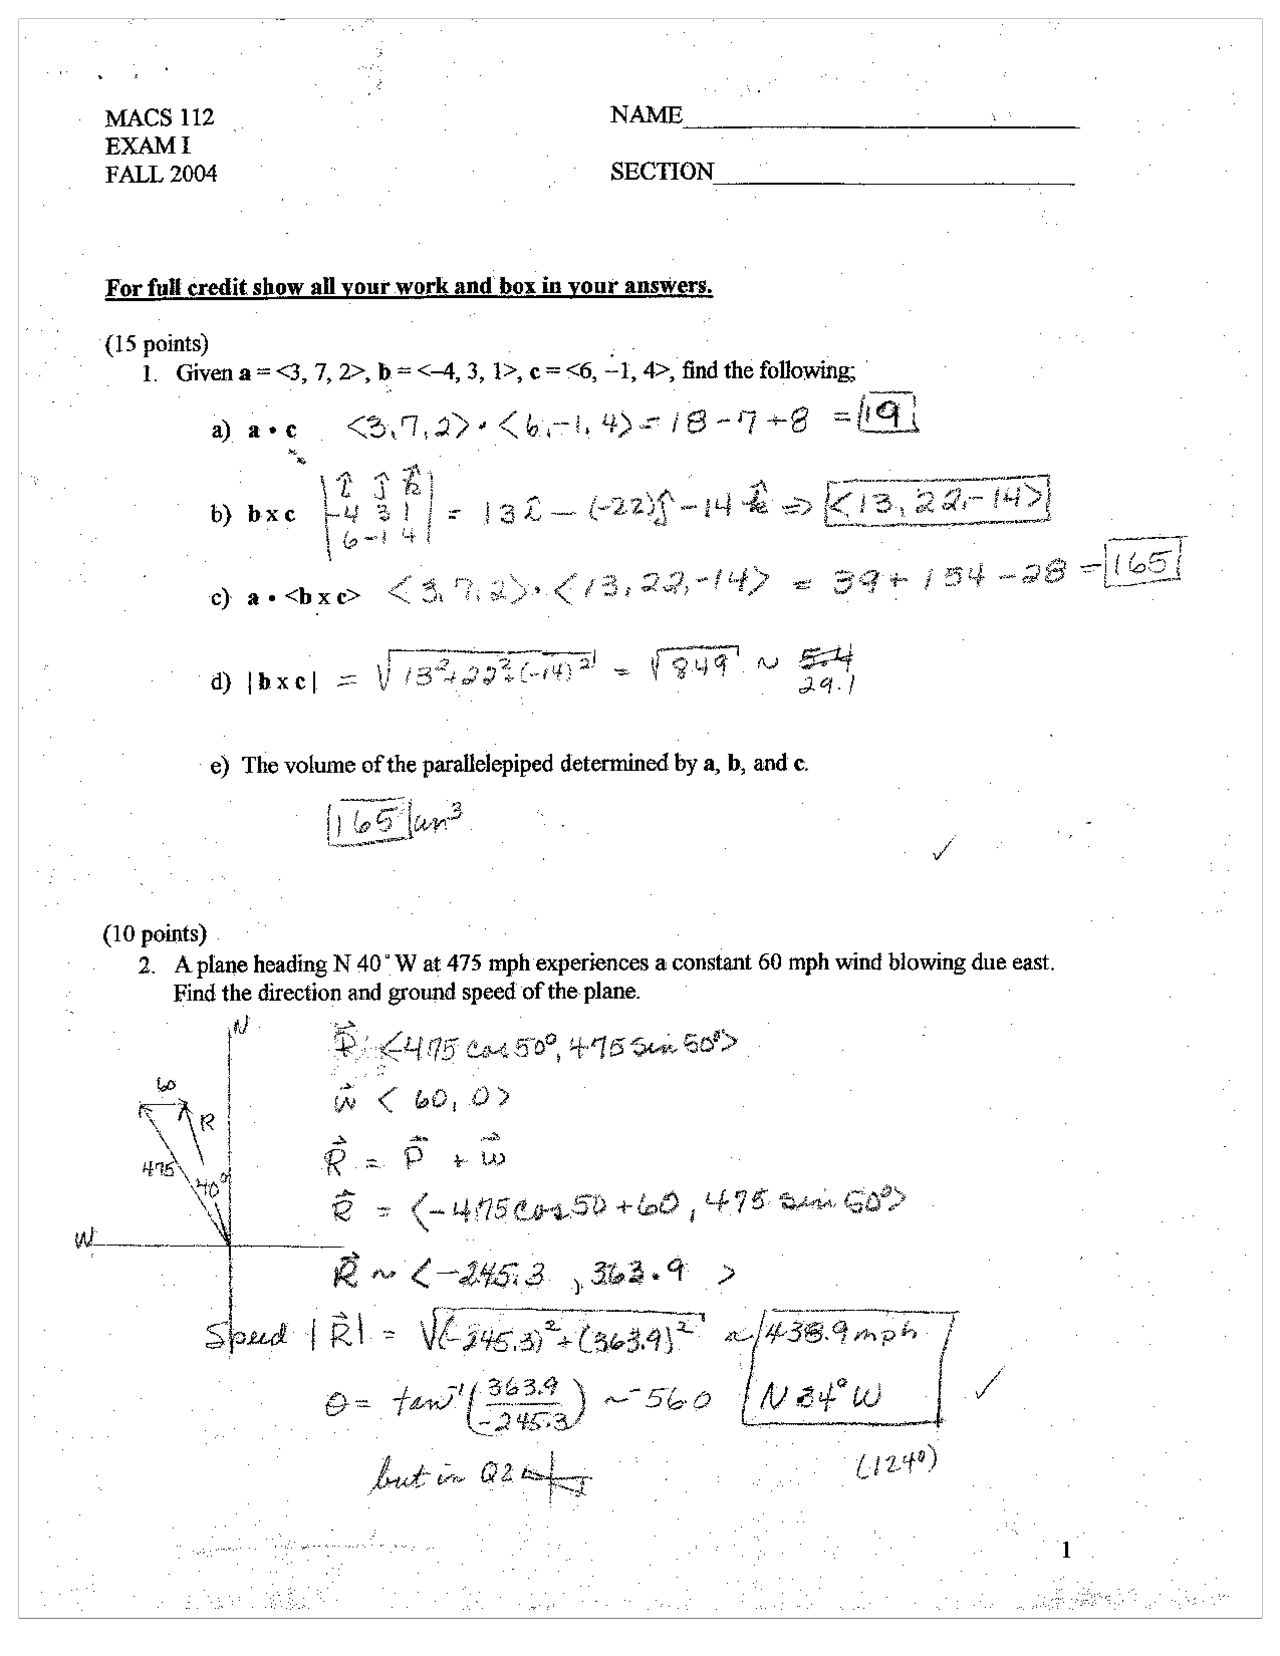 MACS 112
EXAM I
FALL 2004
NAME
SECTION
For full credit show all your work and box in your answers.
(15 points)
1. Given a = <3, 7, 2>, b = <–4, 3, 1>, c = <6, –1, 4>, find the following;
a) a • c <3,7,2> • <6,-1,4> = 18 - 7 + 8 = 19
î ĵ k̂
b) b x c -4 3 1 = 13î - (-22)ĵ - 14k̂ ⇒ <13, 22, -14>
6 -1 4
c) a • <b x c> <3,7,2> • <13,22,-14> = 39 + 154 - 28 = 165
d) | b x c | = √13²+22²+(-14)² = √849 ~ 5.4
29.1
e) The volume of the parallelepiped determined by a, b, and c.
165 un³
(10 points)
2. A plane heading N 40° W at 475 mph experiences a constant 60 mph wind blowing due east.
Find the direction and ground speed of the plane.
N
P⃗: <-475 cos 50°, 475 sin 50°>
60
w⃗ < 60, 0>
R
R⃗ = P⃗ + w⃗
475
40°
R⃗ = <-475 cos 50 + 60, 475 sin 50°>
W
R⃗ ~ <-245.3, 363.9 >
Speed |R⃗| = √(-245.3)²+(363.9)² ≈ 438.9 mph
θ = tan⁻¹(363.9/-245.3) ~ -56.0 N 34° W ✓
but in Q2
(124°)
1